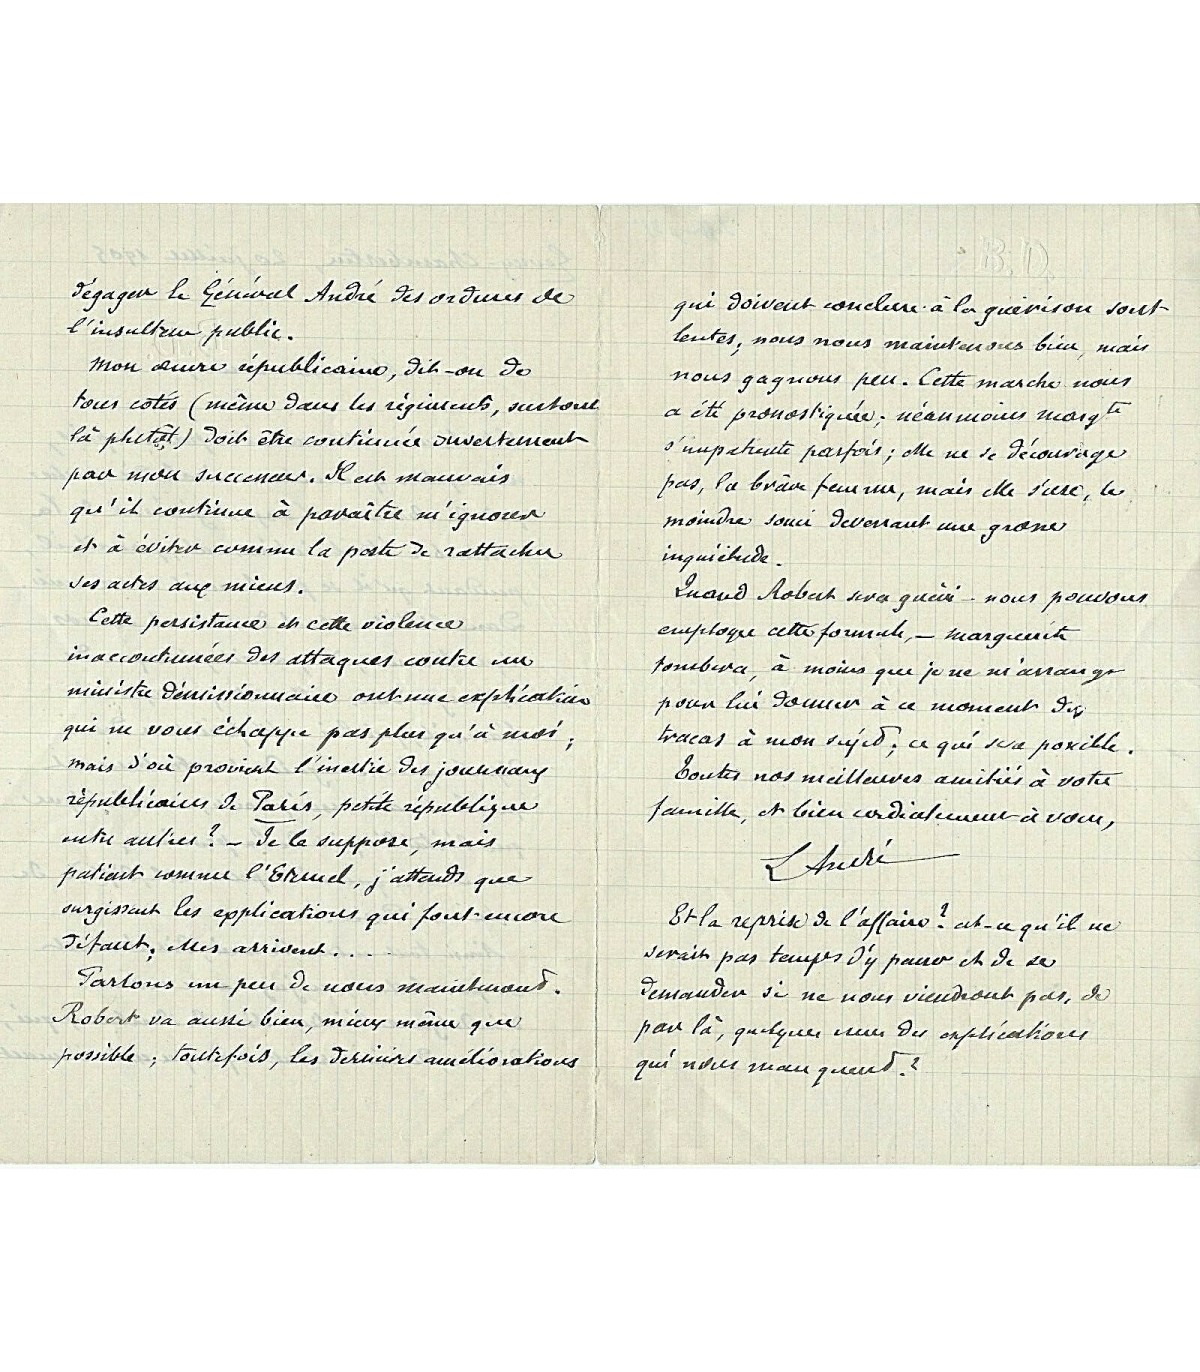 dégager le Général André des ordures de
l'insulteur public.
Mon œuvre républicaine, dit-on de
tous cotés (même dans les régiments, surtout
là plutôt) doit être continuée ouvertement
par mon successeur. Il est mauvais
qu'il continue à paraître m'ignorer
et à éviter comme la peste de rattacher
ses actes aux miens.
Cette persistance et cette violence
inaccoutumées des attaques contre un
ministre démissionnaire ont une explication
qui ne vous échappe pas plus qu'à moi;
mais d'où provient l'inertie des journaux
républicains de Paris, petite république
entre autres? – Je le suppose, mais
patient comme l'Eternel, j'attends que
surgissent les explications qui font encore
défaut; elles arrivent....
Parlons un peu de nous maintenant.
Robert va aussi bien, mieux même que
possible; toutefois, les derniers améliorations
qui doivent conclure à la guérison sont
lentes; nous nous maintenons bien, mais
nous gagnons peu. Cette marche nous
a été pronostiquée; néanmoins Margte
s'impatiente parfois; elle ne se décourage
pas, la brâve femme, mais elle s'use, le
moindre souci devenant une grosse
inquiétude.
Quand Robert sera guéri – nous pouvons
employer cette formule, – Marguerite
tombera, à moins que je ne m'arrange
pour lui donner à ce moment des
tracas à mon sujet; ce qui sera possible.
Toutes nos meilleures amitiés à votre
famille, et bien cordialement à vous,
L André
Et la reprise de l'affaire? est-ce qu'il ne
serait pas temps d'y penser et de se
demander si ne nous viendront pas, de
par là, quelques unes des explications
qui nous manquent?